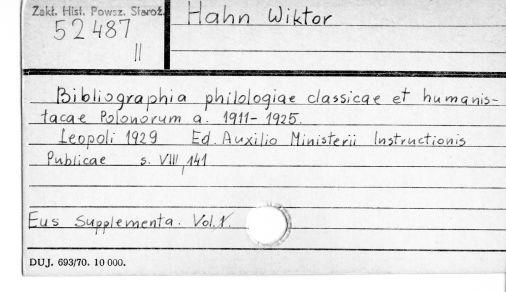 Zakł. Hist. Powsz. Staroż.
52487
II
Hahn Wiktor
Bibliographia philologiae classicae et humanis-
tacae Polonorum a. 1911-1925.
Leopoli 1929 Ed. Auxilio Ministerii Instructionis
Publicae s. VIII, 141
Eus Supplementa. Vol. V.
DUJ. 693/70. 10 000.